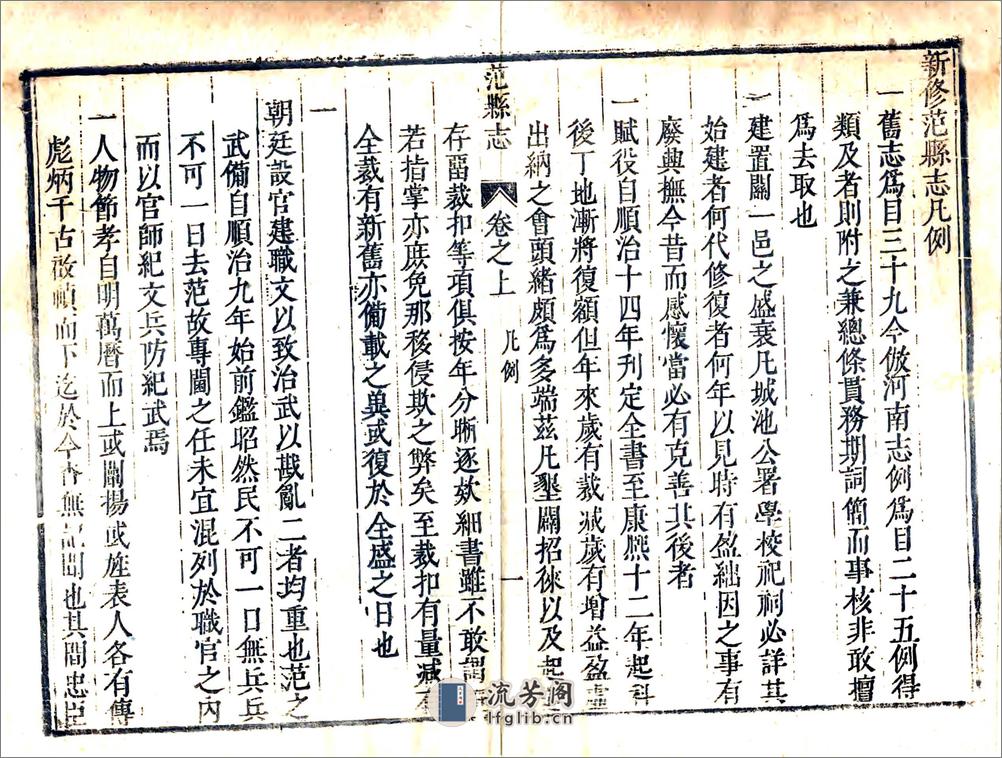 新修范縣志凡例
一舊志爲目三十九今倣河南志例爲目二十五例得
類及者則附之兼總條貫務期詞簡而事核非敢擅
爲去取也
一建置關一邑之盛衰凡城池公署學校祀祠必詳其
始建者何代修復者何年以見時有盈絀因之事有
廢興撫今昔而感懷當必有克善其後者
一賦役自順治十四年刊定全書至康熙十二年起科
後丁地漸將復額但年來歲有裁減歲有增益盈虛
出納之會頭緒頗爲多端茲凡墾闢招徠以及起
范縣志
卷之上
凡例
一
存畱裁扣等項俱按年分晰逐欵細書雖不敢謂
若指掌亦庶免那移侵欺之弊矣至裁扣有量減有
全裁有新舊亦備載之兾或復於全盛之日也
一
朝廷設官建職文以致治武以戡亂二者均重也范之
武備自順治九年始前鑑昭然民不可一日無兵兵
不可一日去范故專閫之任未宜混列於職官之內
而以官師紀文兵防紀武焉
一人物節孝自明萬曆而上或闡揚或旌表人各有傳
彪炳千古啟禎而下迄於今杳無記聞也其間忠臣
流芳阁
lfglib.cn